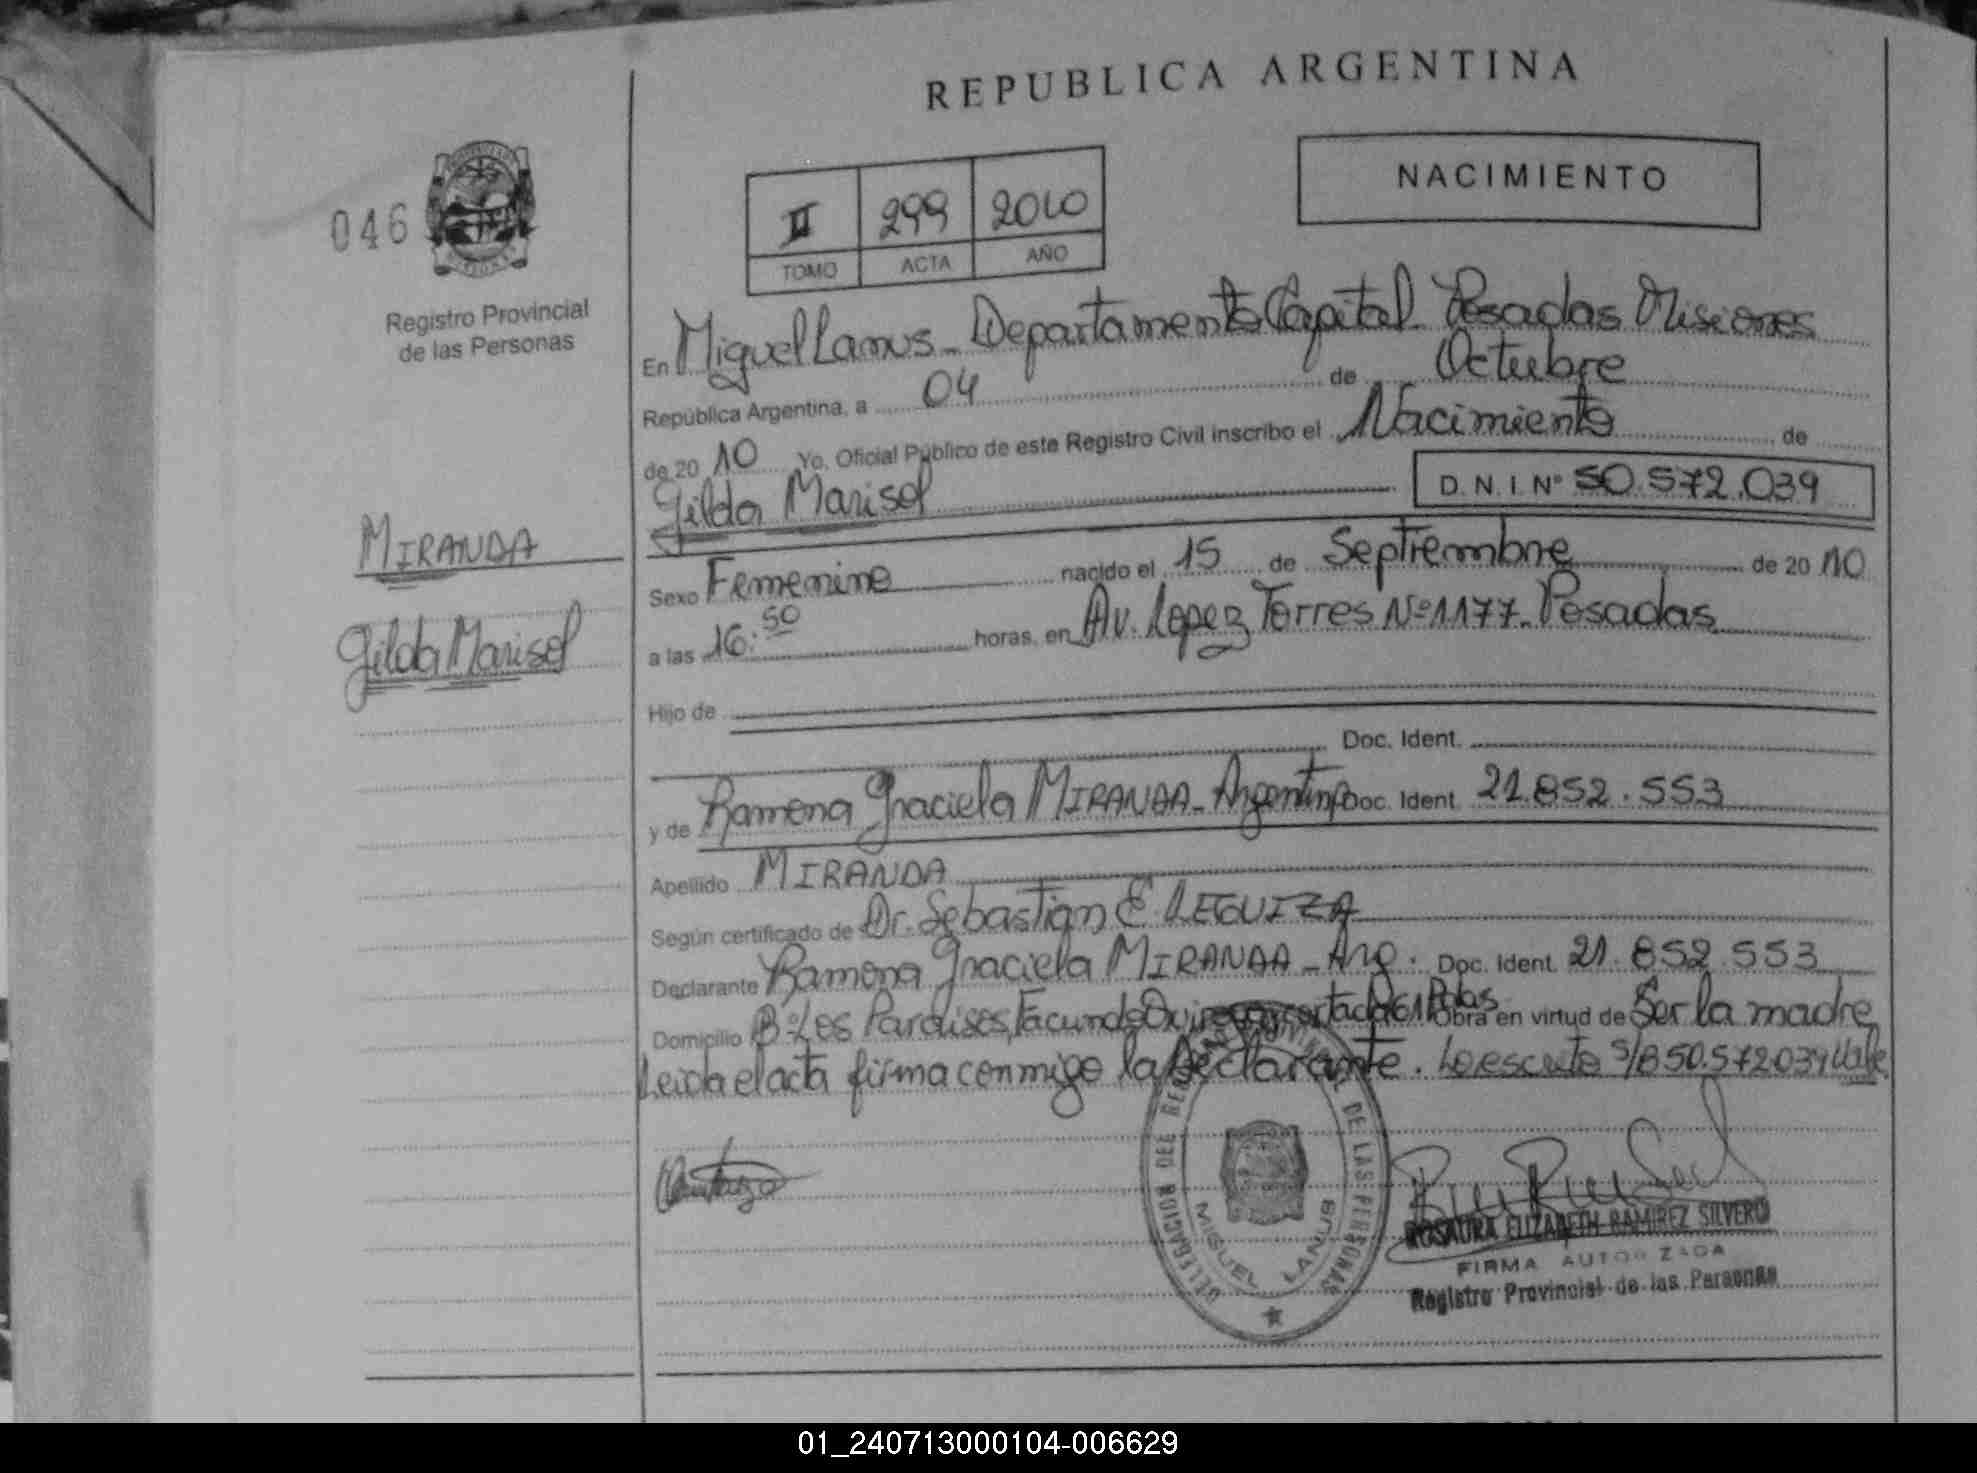 REPUBLICA ARGENTINA
NACIMIENTO
II 299 2010
TOMO ACTA AÑO
046
Registro Provincial
de las Personas
MIRANDA
Gilda Marisol
En Miguel Lanus - Departamento Capital Posadas Misiones
República Argentina, a 04 de Octubre
de 20 10 Yo, Oficial Público de este Registro Civil inscribo el Nacimiento de
Gilda Marisol D.N.I. Nº 50.572.039
Sexo Femenino nacido el 15 de Septiembre de 20 10
a las 16:50 horas, en Av. Lopez Torres Nº 1177 - Posadas
Hijo de
Doc. Ident.
y de Ramona Graciela MIRANDA - Argentina Doc. Ident. 21.852.553
Apellido MIRANDA
Según certificado de Dr. Sebastian E. LEGUIZA
Declarante Ramona Graciela MIRANDA - Arg. Doc. Ident. 21.852.553
Domicilio Bº Los Paraisos, Facundo Pdas. Obra en virtud de Ser la madre
Leida el acta firma conmigo la declarante. Lo escrito s/B 50.572.039 Vale
DELEGACION DEL REGISTRO PROVINCIAL DE LAS PERSONAS
MIGUEL LANUS
ROSAURA ELIZABETH RAMIREZ SILVERO
FIRMA AUTORIZADA
Registro Provincial de las Personas
01_240713000104-006629